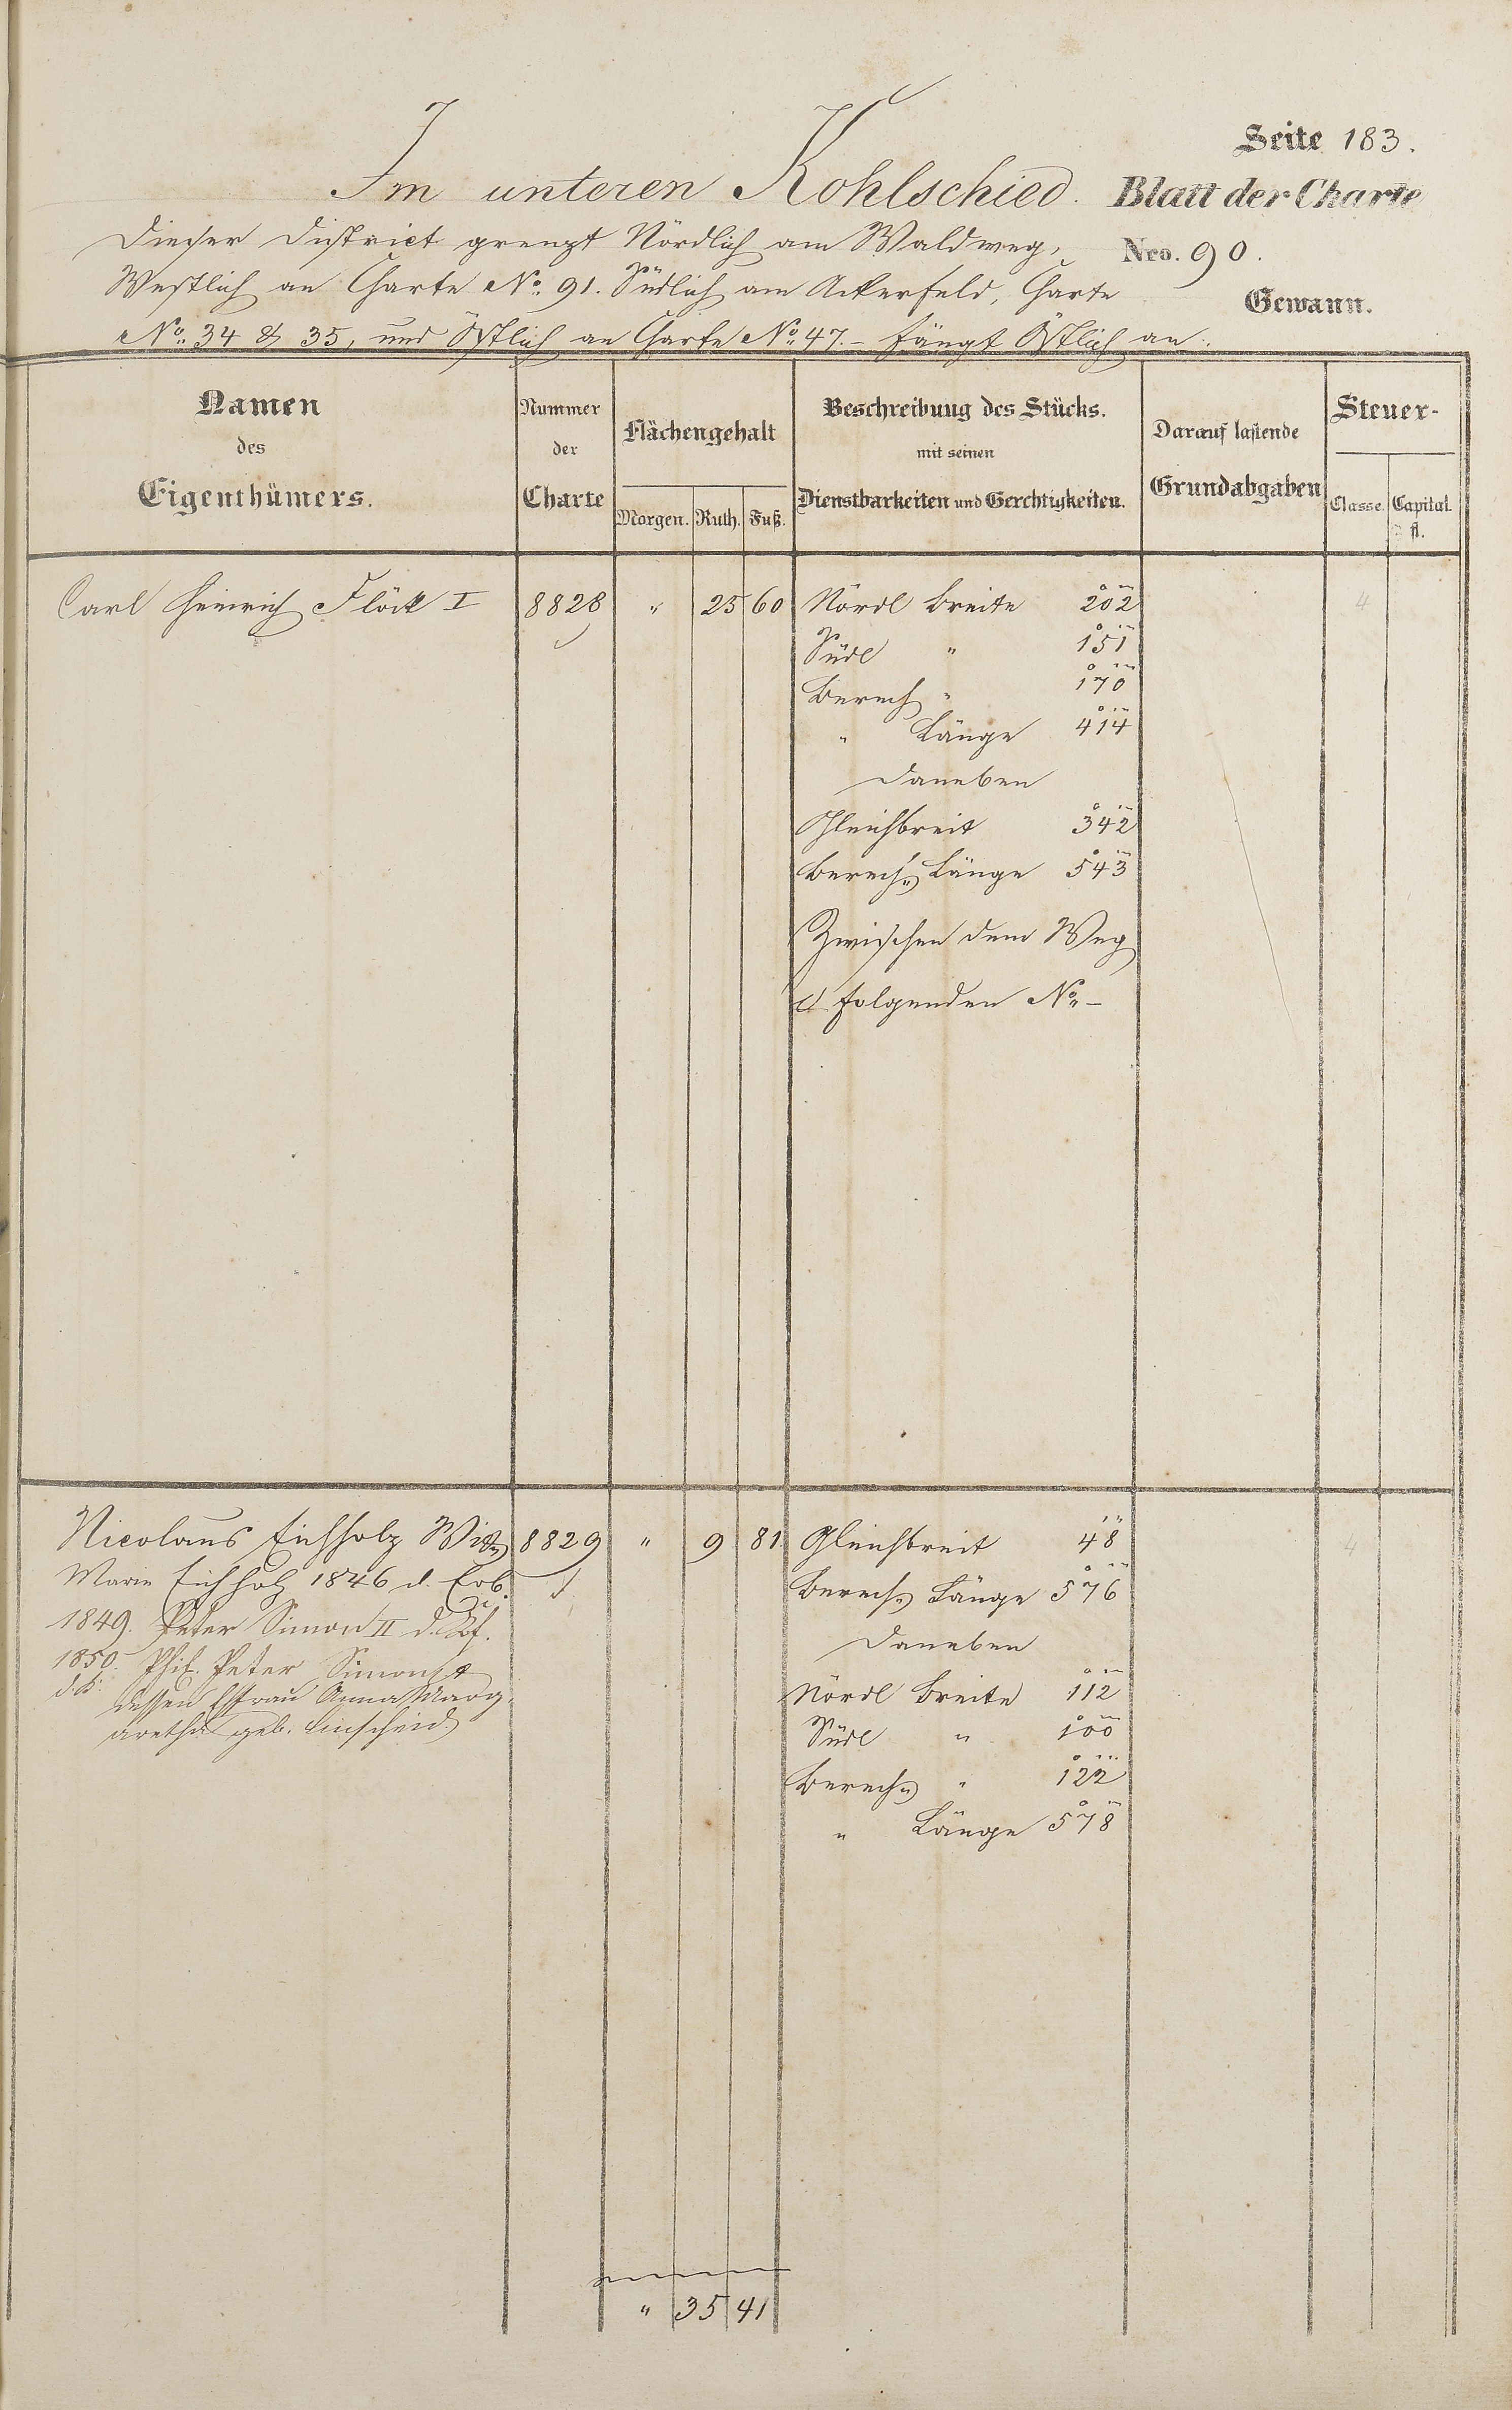 Seite 183.
Im unteren Kohlschied. Blatt der Charte
Dieser District grenzt Nördlich am Waldweg, Nro. 90.
Westlich an Charte No. 91. Südlich am Ackerfeld, Charte
Gewann.
No. 34 & 35, und Östlich an Charte No. 47. – fängt Östlich an.
Namen des Eigenthümers.
Nummer der Charte
Flächengehalt
Morgen. Ruth. Fuß.
Beschreibung des Stücks.
mit seinen
Dienstbarkeiten und Gerechtigkeiten.
Darauf lastende
Grundabgaben
Steuer-
Classe. Capital.
fl.
Carl Heinrich Flöck I 8828 " 25 60 Nördl Breite 202 4
Südl " 151
Berech " 170
" Länge 414
Daneben
Gleichbreit 342
Berech. Länge 543
Zwischen dem Weg
& folgenden No. –
Nicolaus Eichholz Wit. 8829 " 9 81 Gleichbreit 48 4
Marie Eichholz 1846 d. Erb. Berech. Länge 576
1849. Peter Simon II d. Kf. Daneben
1850. Phil. Peter Simon & Nördl Breite 112
d. K. dessen Ehfrau Anna Marg- Südl " 100
aretha geb. Linscheid. Berech. " 122
" Länge 578
" 35 41